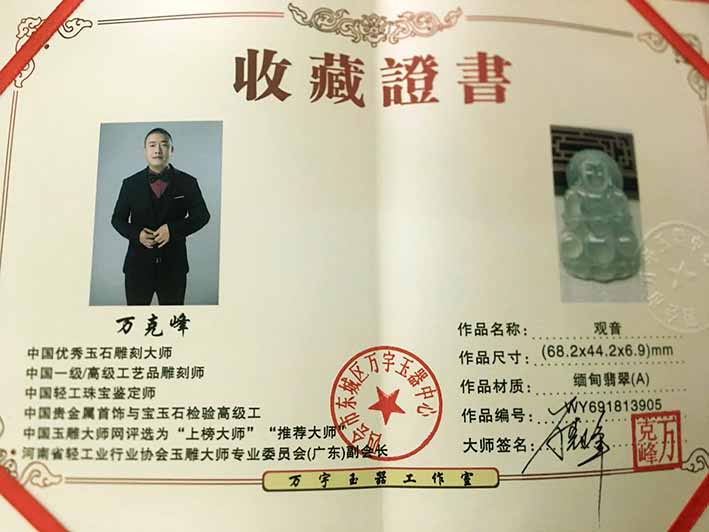 收藏證書
万克峰
中国优秀玉石雕刻大师
中国一级/高级工艺品雕刻师
中国轻工珠宝鉴定师
中国贵金属首饰与宝玉石检验高级工
中国玉雕大师网评选为“上榜大师”“推荐大师”
河南省轻工业行业协会玉雕大师专业委员会(广东)副会长
作品名称: 观音
作品尺寸: (68.2x44.2x6.9)mm
作品材质: 缅甸翡翠(A)
作品编号: WY691813905
大师签名:
万克峰
四会市东城区万宇玉器中心
万宇玉器工作室